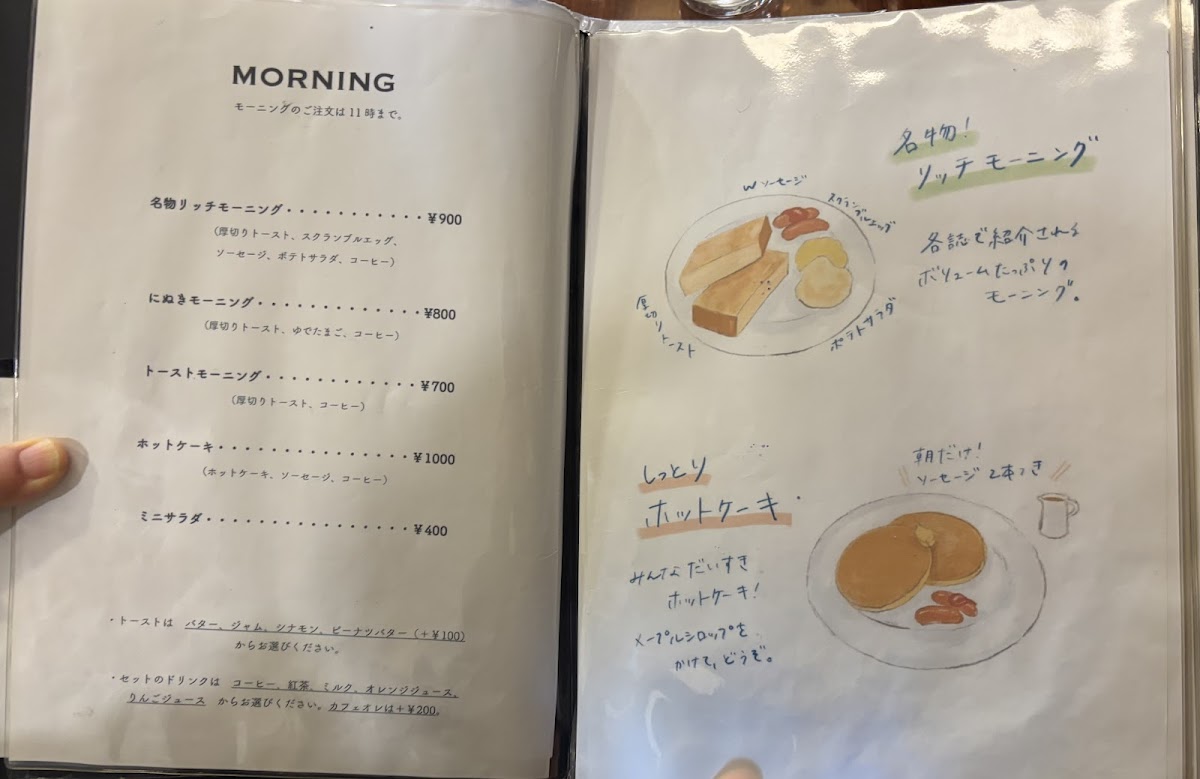 MORNING
モーニングのご注文は11時まで。
名物リッチモーニング・・・・・・・・・・・¥900
(厚切りトースト、スクランブルエッグ、
ソーセージ、ポテトサラダ、コーヒー)
にぬきモーニング・・・・・・・・・・・・・¥800
(厚切りトースト、ゆでたまご、コーヒー)
トーストモーニング・・・・・・・・・・・・¥700
(厚切りトースト、コーヒー)
ホットケーキ・・・・・・・・・・・・・・・¥1000
(ホットケーキ、ソーセージ、コーヒー)
ミニサラダ・・・・・・・・・・・・・・・・¥400
・トーストは バター、ジャム、シナモン、ピーナツバター(+¥100)
からお選びください。
・セットのドリンクは コーヒー、紅茶、ミルク、オレンジジュース、
りんごジュース からお選びください。カフェオレは+¥200。
名物!
リッチ モーニング
Wソーセージ
スクランブルエッグ
厚切りトースト
ポテトサラダ
各誌で紹介される
ボリュームたっぷりの
モーニング。
しっとり
ホットケーキ
朝だけ!
ソーセージ 2本つき
みんなだいすき
ホットケーキ!
メープルシロップを
かけて、どうぞ。